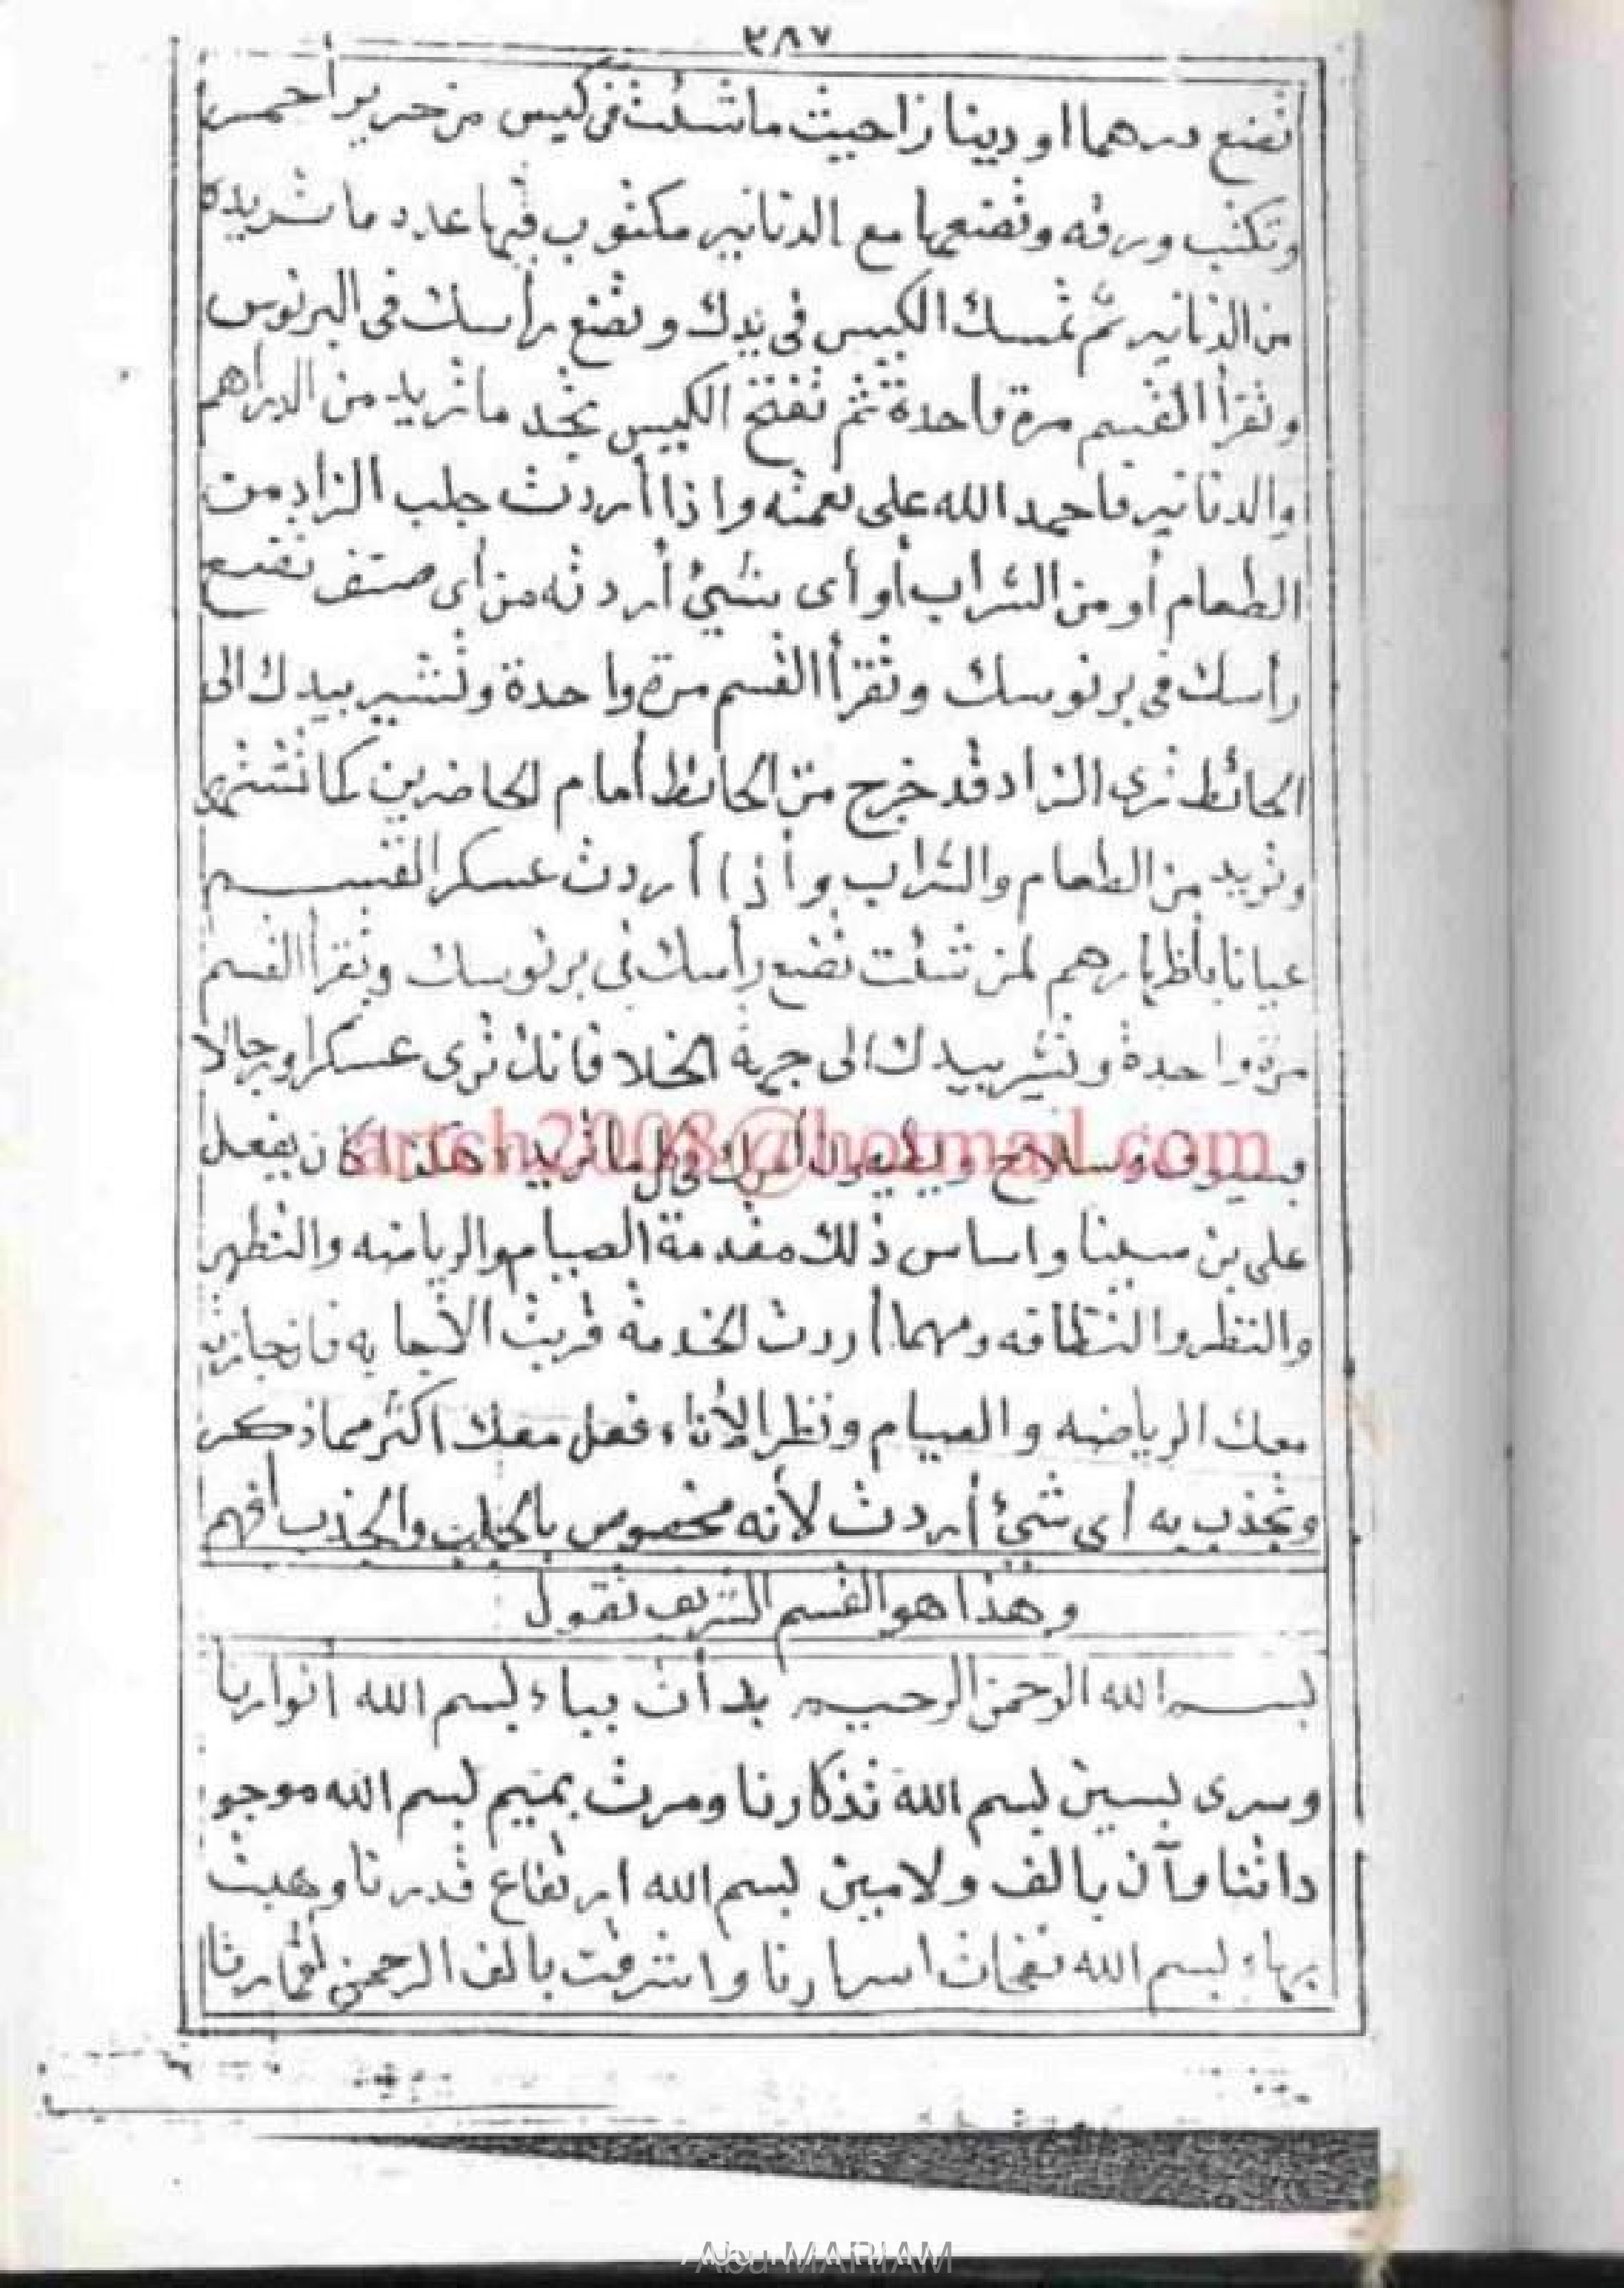 ٣٨٧
تضع درهما او دينارا حيث ما شئت فى كيس من حرير أحمر
وتكتب ورقه وتضعها مع الدنانير مكتوب فيها عدد ما تريده
من الدنانير ثم تمسك الكيس فى يدك وتضع رأسك فى البرنوس
وتقرأ القسم مرة واحدة ثم تفتح الكيس تجد ما تريد من الدراهم
والدنانير فاحمد الله على نعمته واذا أردت جلب الزاد من
الطعام أو من الشراب أو أى شيئ أردته من أى صنف تضع
رأسك فى برنوسك وتقرأ القسم مرة واحدة وتشير بيدك الى
الحائط ترى الزاد قد خرج من الحائط أمام الحاضرين كما تشتهى
وتريد من الطعام والشراب وأذا أردت عسكر القسم
عيانا بأظهارهم لمن شئت تضع رأسك فى برنوسك وتقرأ القسم
مرة واحدة وتشير بيدك الى جهة الخلا فانك ترى عسكرا ورجالا
بسيوف وسلاح ويطيعون أمرك فى كل ما تريد هكذا كان يفعل
artsh2008@hotmail.com
على بن سينا واساس ذلك مقدمة الصيام والرياضه والتطهر
والنظر والنظافه ومهما أردت الخدمة قربت الأجابه فان جازت
معك الرياضه والصيام ونظر الأناء فعل معك اكثر مما ذكر
وتجذب به أى شيئ أردت لأنه مخصوص بالجلب والجذب افهم
وهذا هو القسم الشريف تقول
بسم الله الرحمن الرحيم بدأت بباء بسم الله أنوارنا
وسرى بسين بسم الله تذكارنا ومرت بميم بسم الله موجو
داتنا وآن بالف ولامين بسم الله ارتفاع قدرنا وهبت
بهاء بسم الله نفحات اسرارنا واشرقت بالف الرحمن أقمارنا
Abu MARIAM